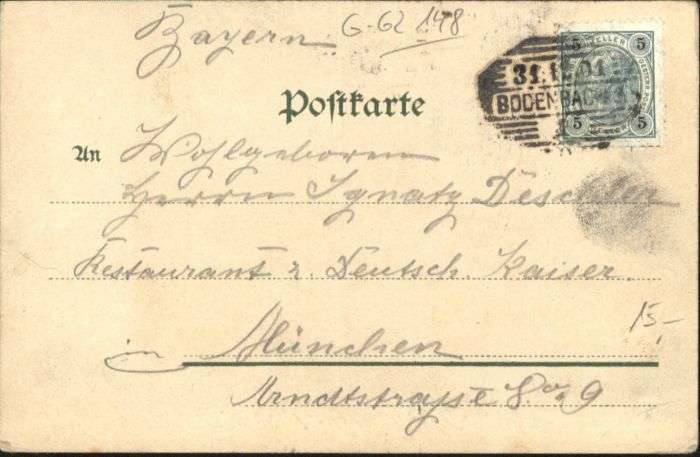 Bayern
G-62 148
5 HELLER 5
31.12.01
BODENBACH
5 5
Postkarte
An Wohlgeboren
Herrn Ignatz Deschler
Restaurant z. Deutsch. Kaiser.
15,-
in München
Arndtstraße 9